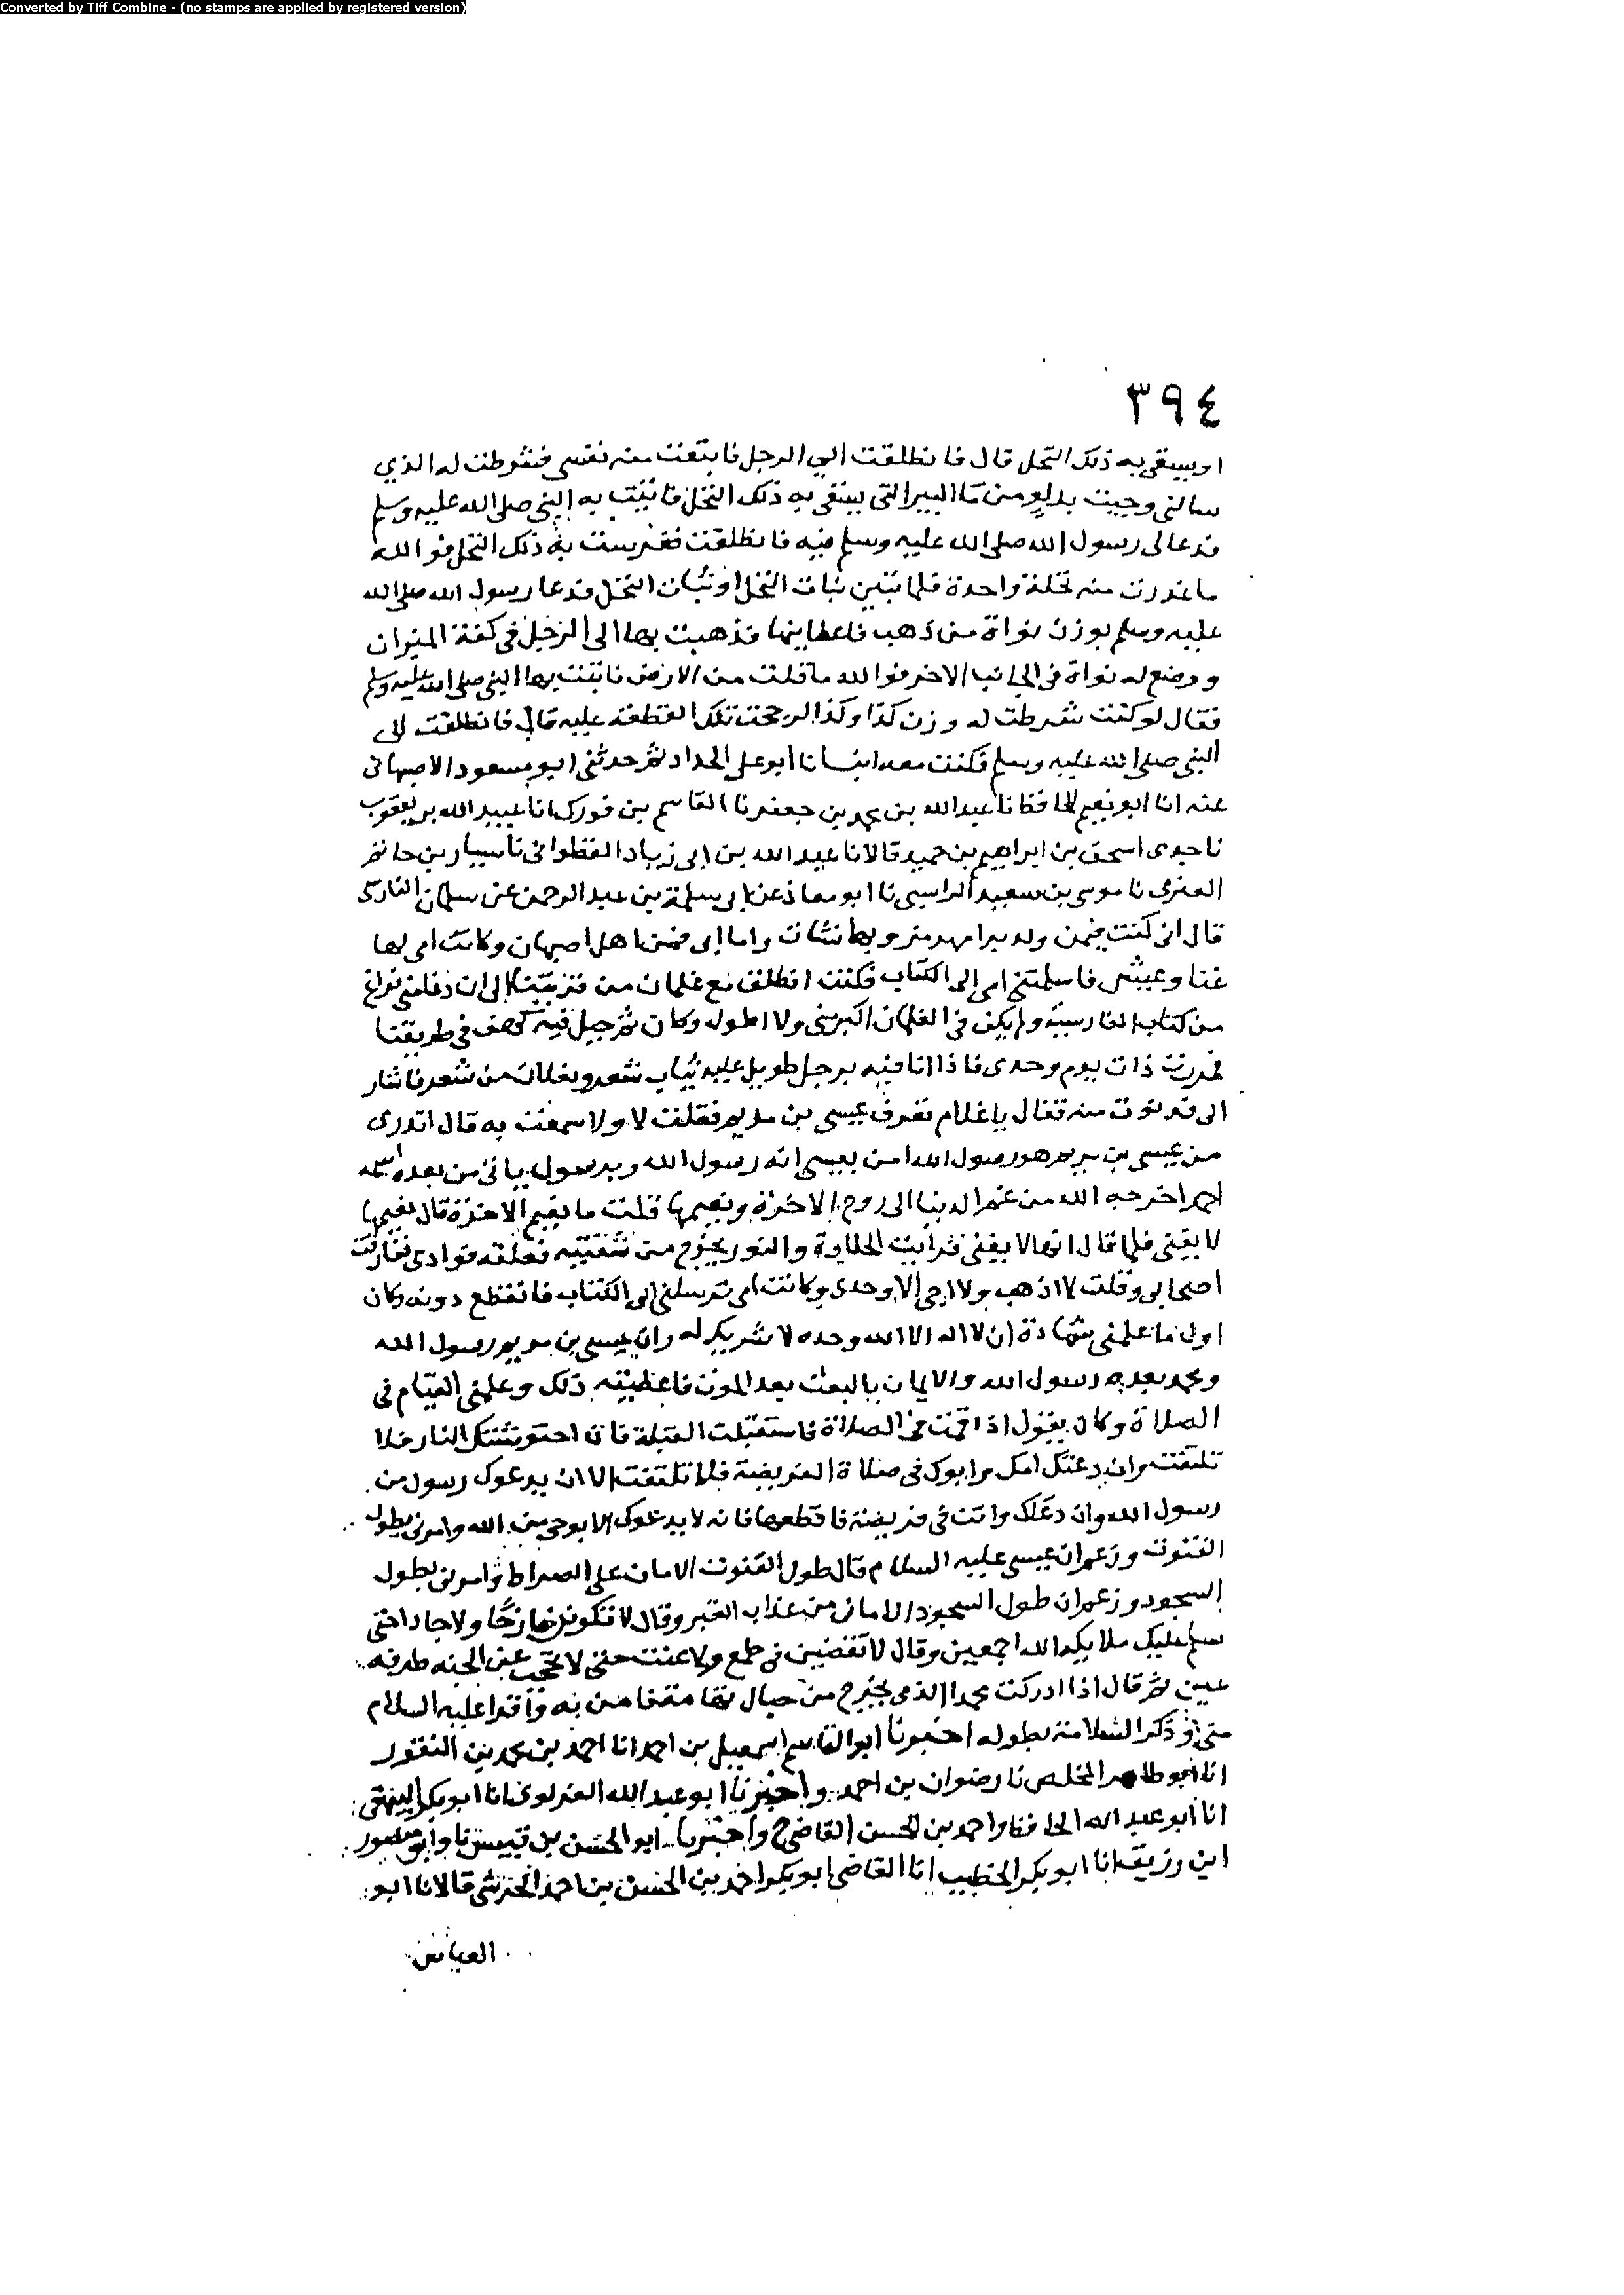 Converted by Tiff Combine - (no stamps are applied by registered version)
٣٩٤
او يسقى به ذلك النخل قال فانطلقت الى الرجل فابتعت منه نفسى فشرطت له الذي
سالنى وجيت بدلو من ما البير التى يسقى به ذلك النخل فاتيت به النبى صلى الله عليه وسلم
فدعا لى رسول الله صلى الله عليه وسلم فيه فانطلقت فغرست به ذلك النخل فوالله
ما غدرت منه نخلة واحدة فلما تبين نبات النخل او ثبات النخل فدعا رسول الله صلى الله
عليه وسلم بوزن نواة من ذهب فاعطانيها فذهبت بها الى الرجل فى كفة الميزان
ووضع له نواة فى الجانب الاخر فوالله ما قلت من الارض فاتيت بها النبى صلى الله عليه وسلم
فقال لو كنت شرطت له وزن كذا وكذا لرجحت تلك القطعة عليه قال فانطلقت الى
النبى صلى الله عليه وسلم فكنت معه انبانا ابو على الحداد ثم حدثنى ابو مسعود الاصبهانى
عنه انا ابو نعيم الحافظ نا عبد الله بن محمد بن جعفر نا القاسم بن فورك نا عبيد الله بن يعقوب
نا جدى اسحق بن ابراهيم بن حميد قالا نا عبد الله بن ابى زياد القطوانى نا سيار بن حاتم
العنزى نا موسى بن سعيد الراسبى نا ابو معاذ عن ابى سلمة بن عبد الرحمن عن سلمان الفارسى
قال انى كنت فيمن ولد برامهرمز وبها نشات واما ابى فمن اهل اصبهان وكانت امى لها
غنا وعيش فاسلمتنى امى الى الكتاب فكنت انطلق مع غلمان من قريتنا الى ان دنا منى فراغ
من كتاب الفارسية ولم يكن فى الغلمان اكبر منى ولا اطول وكان ثم جبل فيه كهف فى طريقنا
فمررت ذات يوم وحدى فاذا انا فيه برجل طويل عليه ثياب شعر ونعلان من شعر فاشار
الى فدنوت منه فقال يا غلام تعرف عيسى بن مريم فقلت لا ولا سمعت به قال اتدرى
من عيسى بن مريم هو رسول الله امن بعيسى انه رسول الله وبرسول ياتى من بعده اسمه
احمد اخرجه الله من غم الدنيا الى روح الاخرة ونعيمها قلت ما نعيم الاخرة قال نعيمها
لا يفنى فلما قال انها لا يفنى فرايت الحلاوة والنور يخرج من شفتيه فعلقه فوادى ففارقت
اصحابى وقلت لا اذهب ولا اجى الا وحدى وكانت امى ترسلنى الى الكتاب فانقطع دونه وكان
اول ما علمنى شهادة ان لا اله الا الله وحده لا شريك له وان عيسى بن مريم رسول الله
ومحمد بعده رسول الله والايمان بالبعث بعد الموت فاعطيته ذلك وعلمنى القيام فى
الصلاة وكان يقول اذا قمت فى الصلاة فاستقبلت القبلة فان احتوشتك النار فلا
تلتفت وان دعتك امك وابوك فى صلاة الفريضة فلا تلتفت الا ان يدعوك رسول من
رسول الله وان دعاك وانت فى فريضة فاقطعها فانه لا يدعوك الا بوحى من الله وامرنى بطول
القنوت وزعم ان عيسى عليه السلام قال طول القنوت الامان على الصراط وامرنى بطول
السجود وزعم ان طول السجود الامان من عذاب القبر وقال لا تكونن مازحا ولا جادا حتى
يسلم عليك ملايكة الله اجمعين وقال لا تعصين فى طمع ولا عنت حتى لا تحجب عن الجنة طرفة
عين ثم قال اذا ادركت محمدا الذى يخرج من جبال تهامة فامن به واقرا عليه السلام
منى وذكر اسلامه بطوله اخبرنا ابو القاسم اسمعيل بن احمد انا احمد بن محمد بن النقور
انا ابو طاهر المخلص نا رضوان بن احمد واخبرنا ابو عبد الله الفراوى انا ابو بكر البيهقى
انا ابو عبد الله الحافظ واحمد بن الحسن القاضى ح واخبرنا ابو الحسن بن قبيس نا وابو منصور
ابن رزيق انا ابو بكر الخطيب انا القاضى ابو بكر احمد بن الحسن بن احمد الحرشى قالا نا ابو
العباس